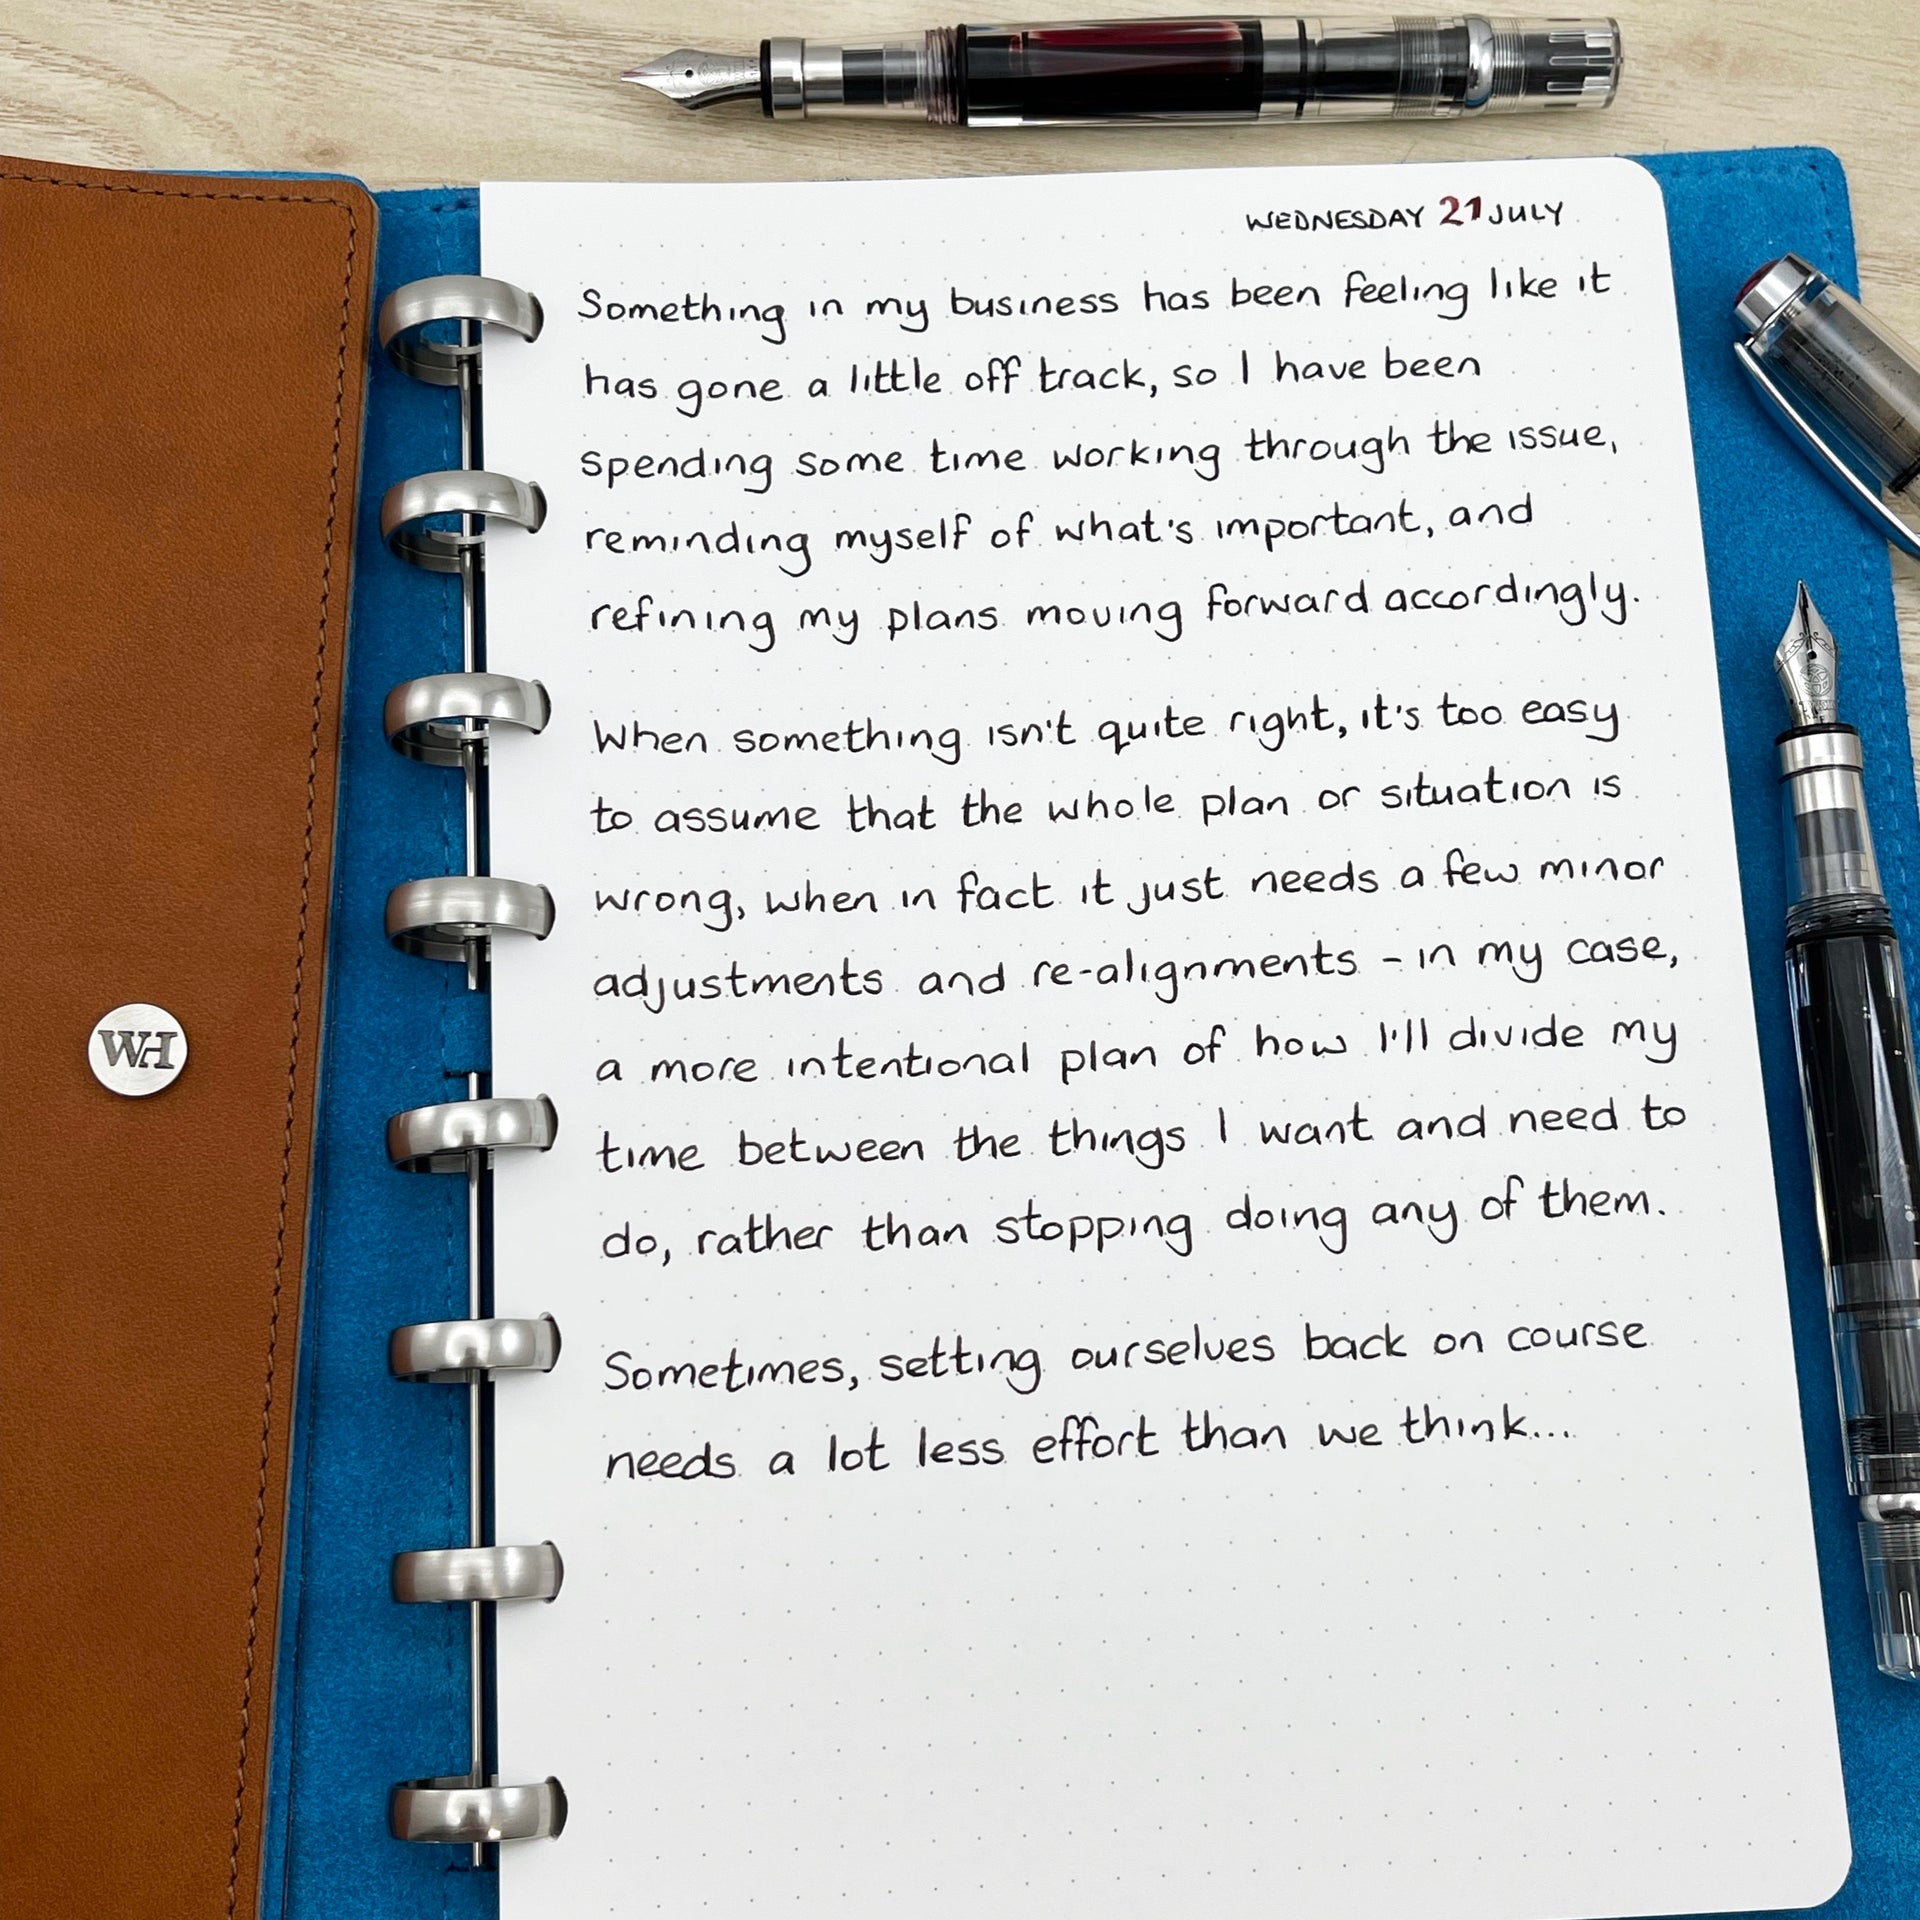 WEDNESDAY 21 JULY
Something in my business has been feeling like it
has gone a little off track, so I have been
spending some time working through the issue,
reminding myself of what's important, and
refining my plans moving forward accordingly.
When something isn't quite right, it's too easy
to assume that the whole plan or situation is
wrong, when in fact it just needs a few minor
adjustments and re-alignments - in my case,
a more intentional plan of how I'll divide my
time between the things I want and need to
do, rather than stopping doing any of them.
Sometimes, setting ourselves back on course
needs a lot less effort than we think...
WH